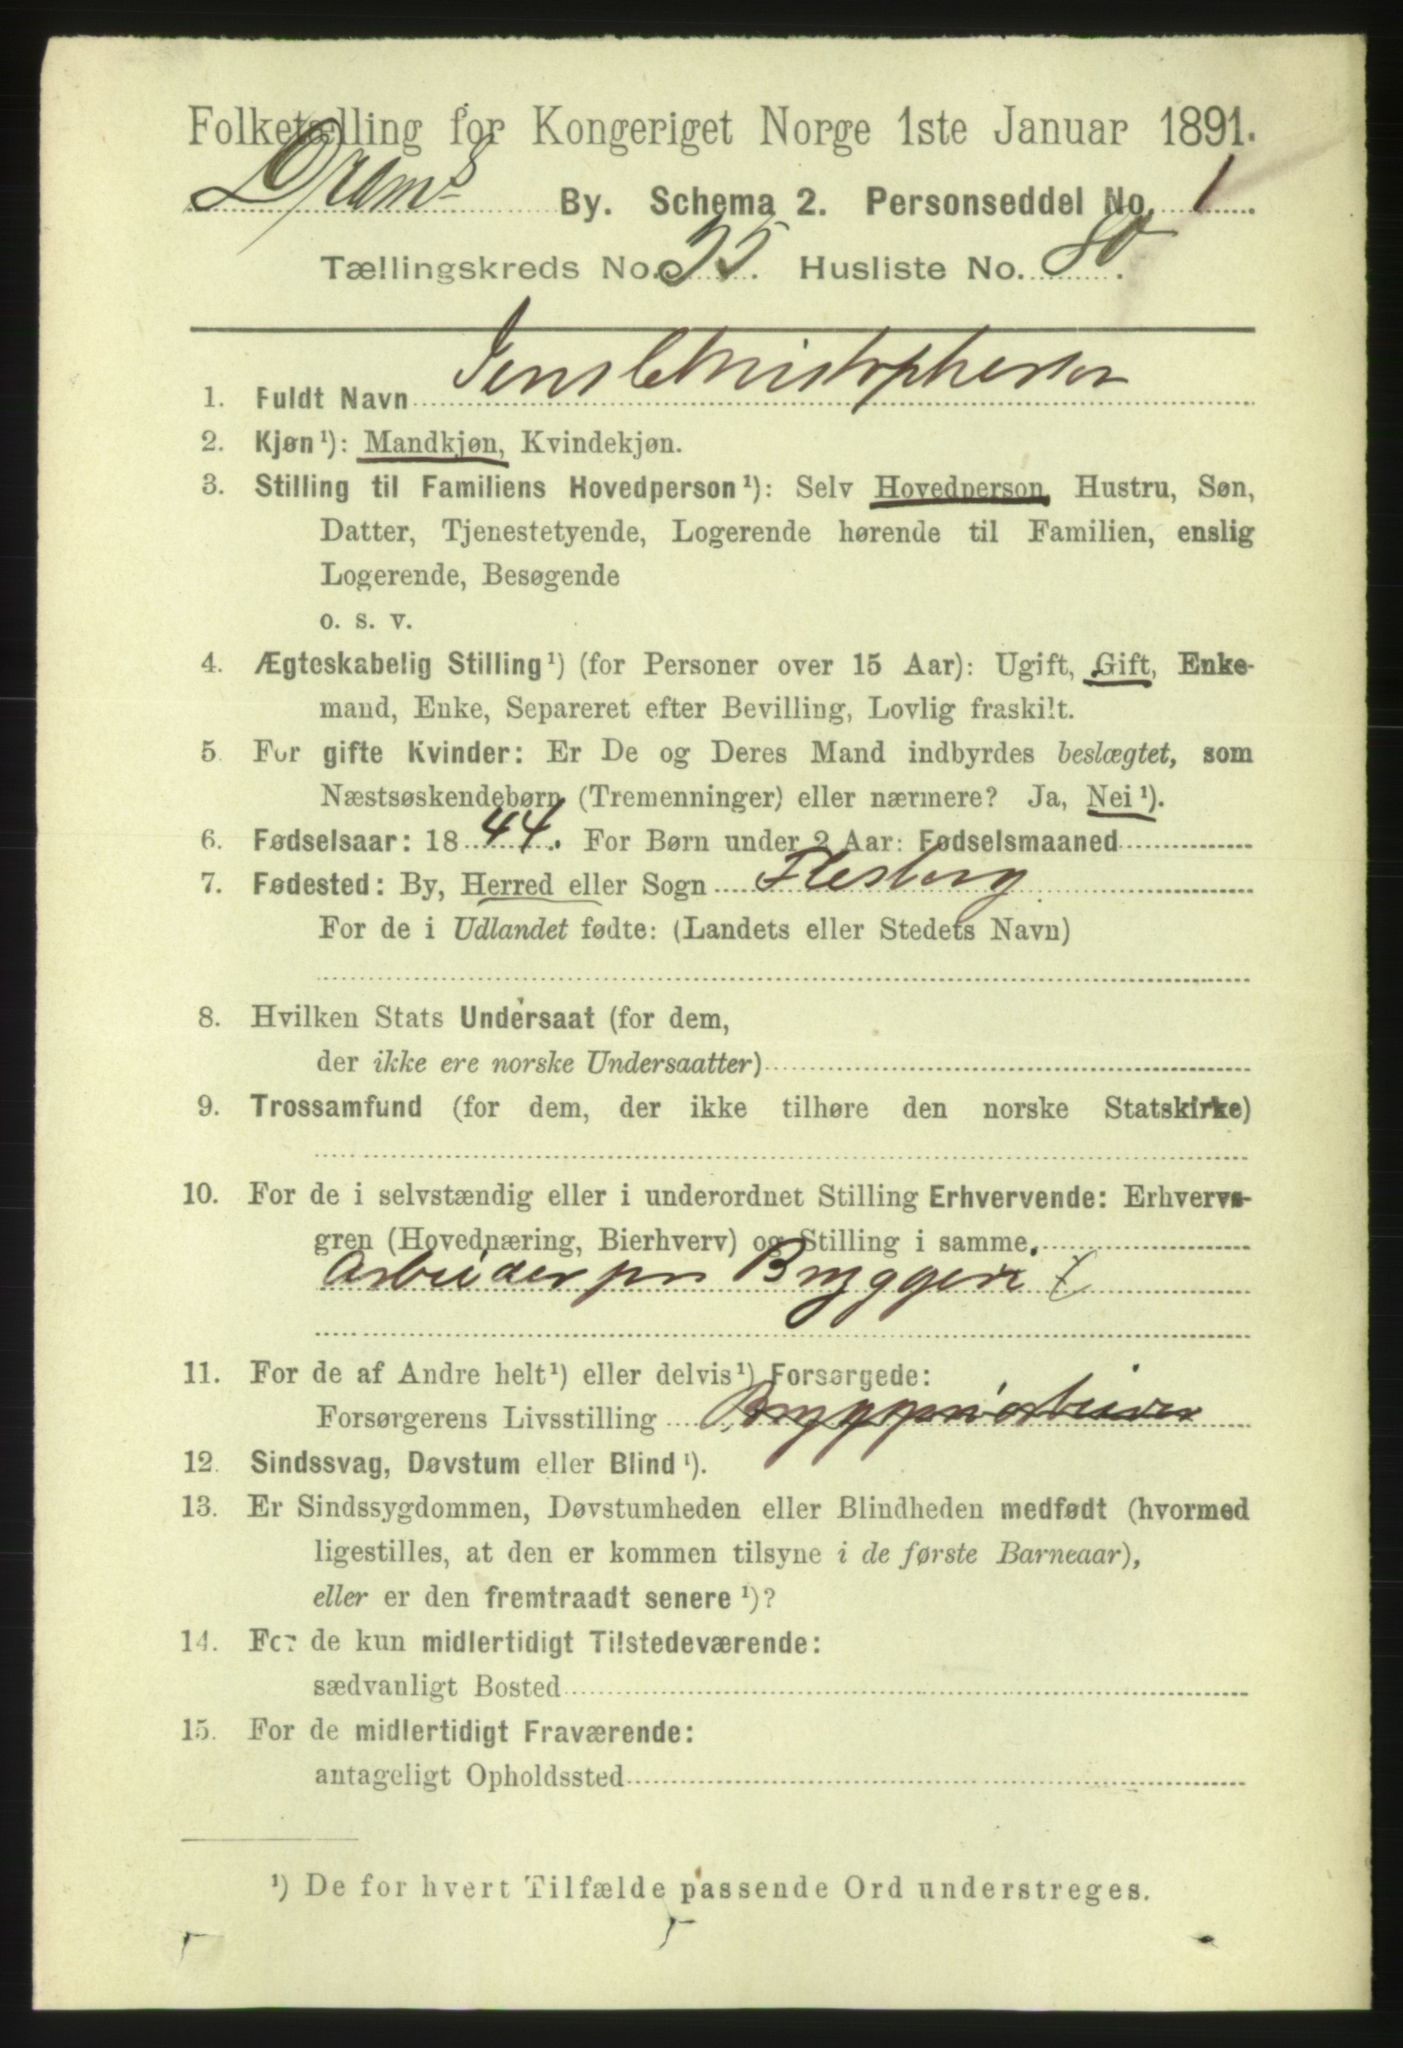 Folketælling for Kongeriget Norge 1ste Januar 1891.
Dram⁸ By. Schema 2. Personseddel No. 1.
Tællingskreds No. 35. Husliste No. 80.
1. Fuldt Navn Jens Christophersen
2. Kjøn¹): Mandkjøn, Kvindekjøn.
3. Stilling til Familiens Hovedperson¹): Selv Hovedperson, Hustru, Søn,
Datter, Tjenestetyende, Logerende hørende til Familien, enslig
Logerende, Besøgende
o. s. v.
4. Ægteskabelig Stilling¹) (for Personer over 15 Aar): Ugift, Gift, Enke-
mand, Enke, Separeret efter Bevilling, Lovlig fraskilt.
5. For gifte Kvinder: Er De og Deres Mand indbyrdes beslægtet, som
Næstsøskendebørn (Tremenninger) eller nærmere? Ja, Nei¹).
6. Fødselsaar: 1844. For Børn under 2 Aar: Fødselsmaaned
7. Fødested: By, Herred eller Sogn Flesberg
For de i Udlandet fødte: (Landets eller Stedets Navn)
8. Hvilken Stats Undersaat (for dem,
der ikke ere norske Undersaatter)
9. Trossamfund (for dem, der ikke tilhøre den norske Statskirke)
10. For de i selvstændig eller i underordnet Stilling Erhvervende: Erhvervs-
gren (Hovednæring, Bierhverv) og Stilling i samme.
Arbeider paa Bryggeri t
11. For de af Andre helt¹) eller delvis¹) Forsørgede:
Forsørgerens Livsstilling Bryggeriarbeider
12. Sindssvag, Døvstum eller Blind¹).
13. Er Sindssygdommen, Døvstumheden eller Blindheden medfødt (hvormed
ligestilles, at den er kommen tilsyne i de første Barneaar),
eller er den fremtraadt senere¹)?
14. For de kun midlertidigt Tilstedeværende:
sædvanligt Bosted
15. For de midlertidigt Fraværende:
antageligt Opholdssted
¹) De for hvert Tilfælde passende Ord understreges.